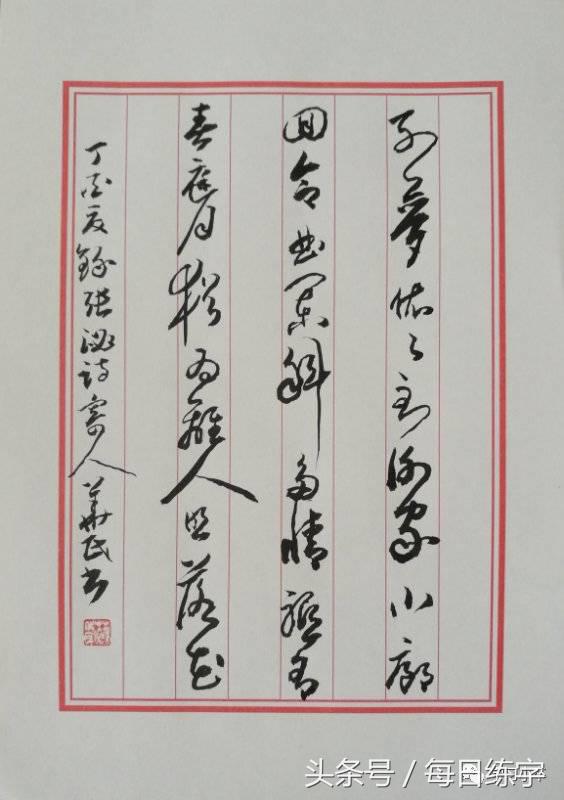 别夢依々到谢家小廊
回合曲阑斜多情祗有
春庭月猶为離人照落花
丁酉夏録张泌诗寄人華民书
头条号/每日练字